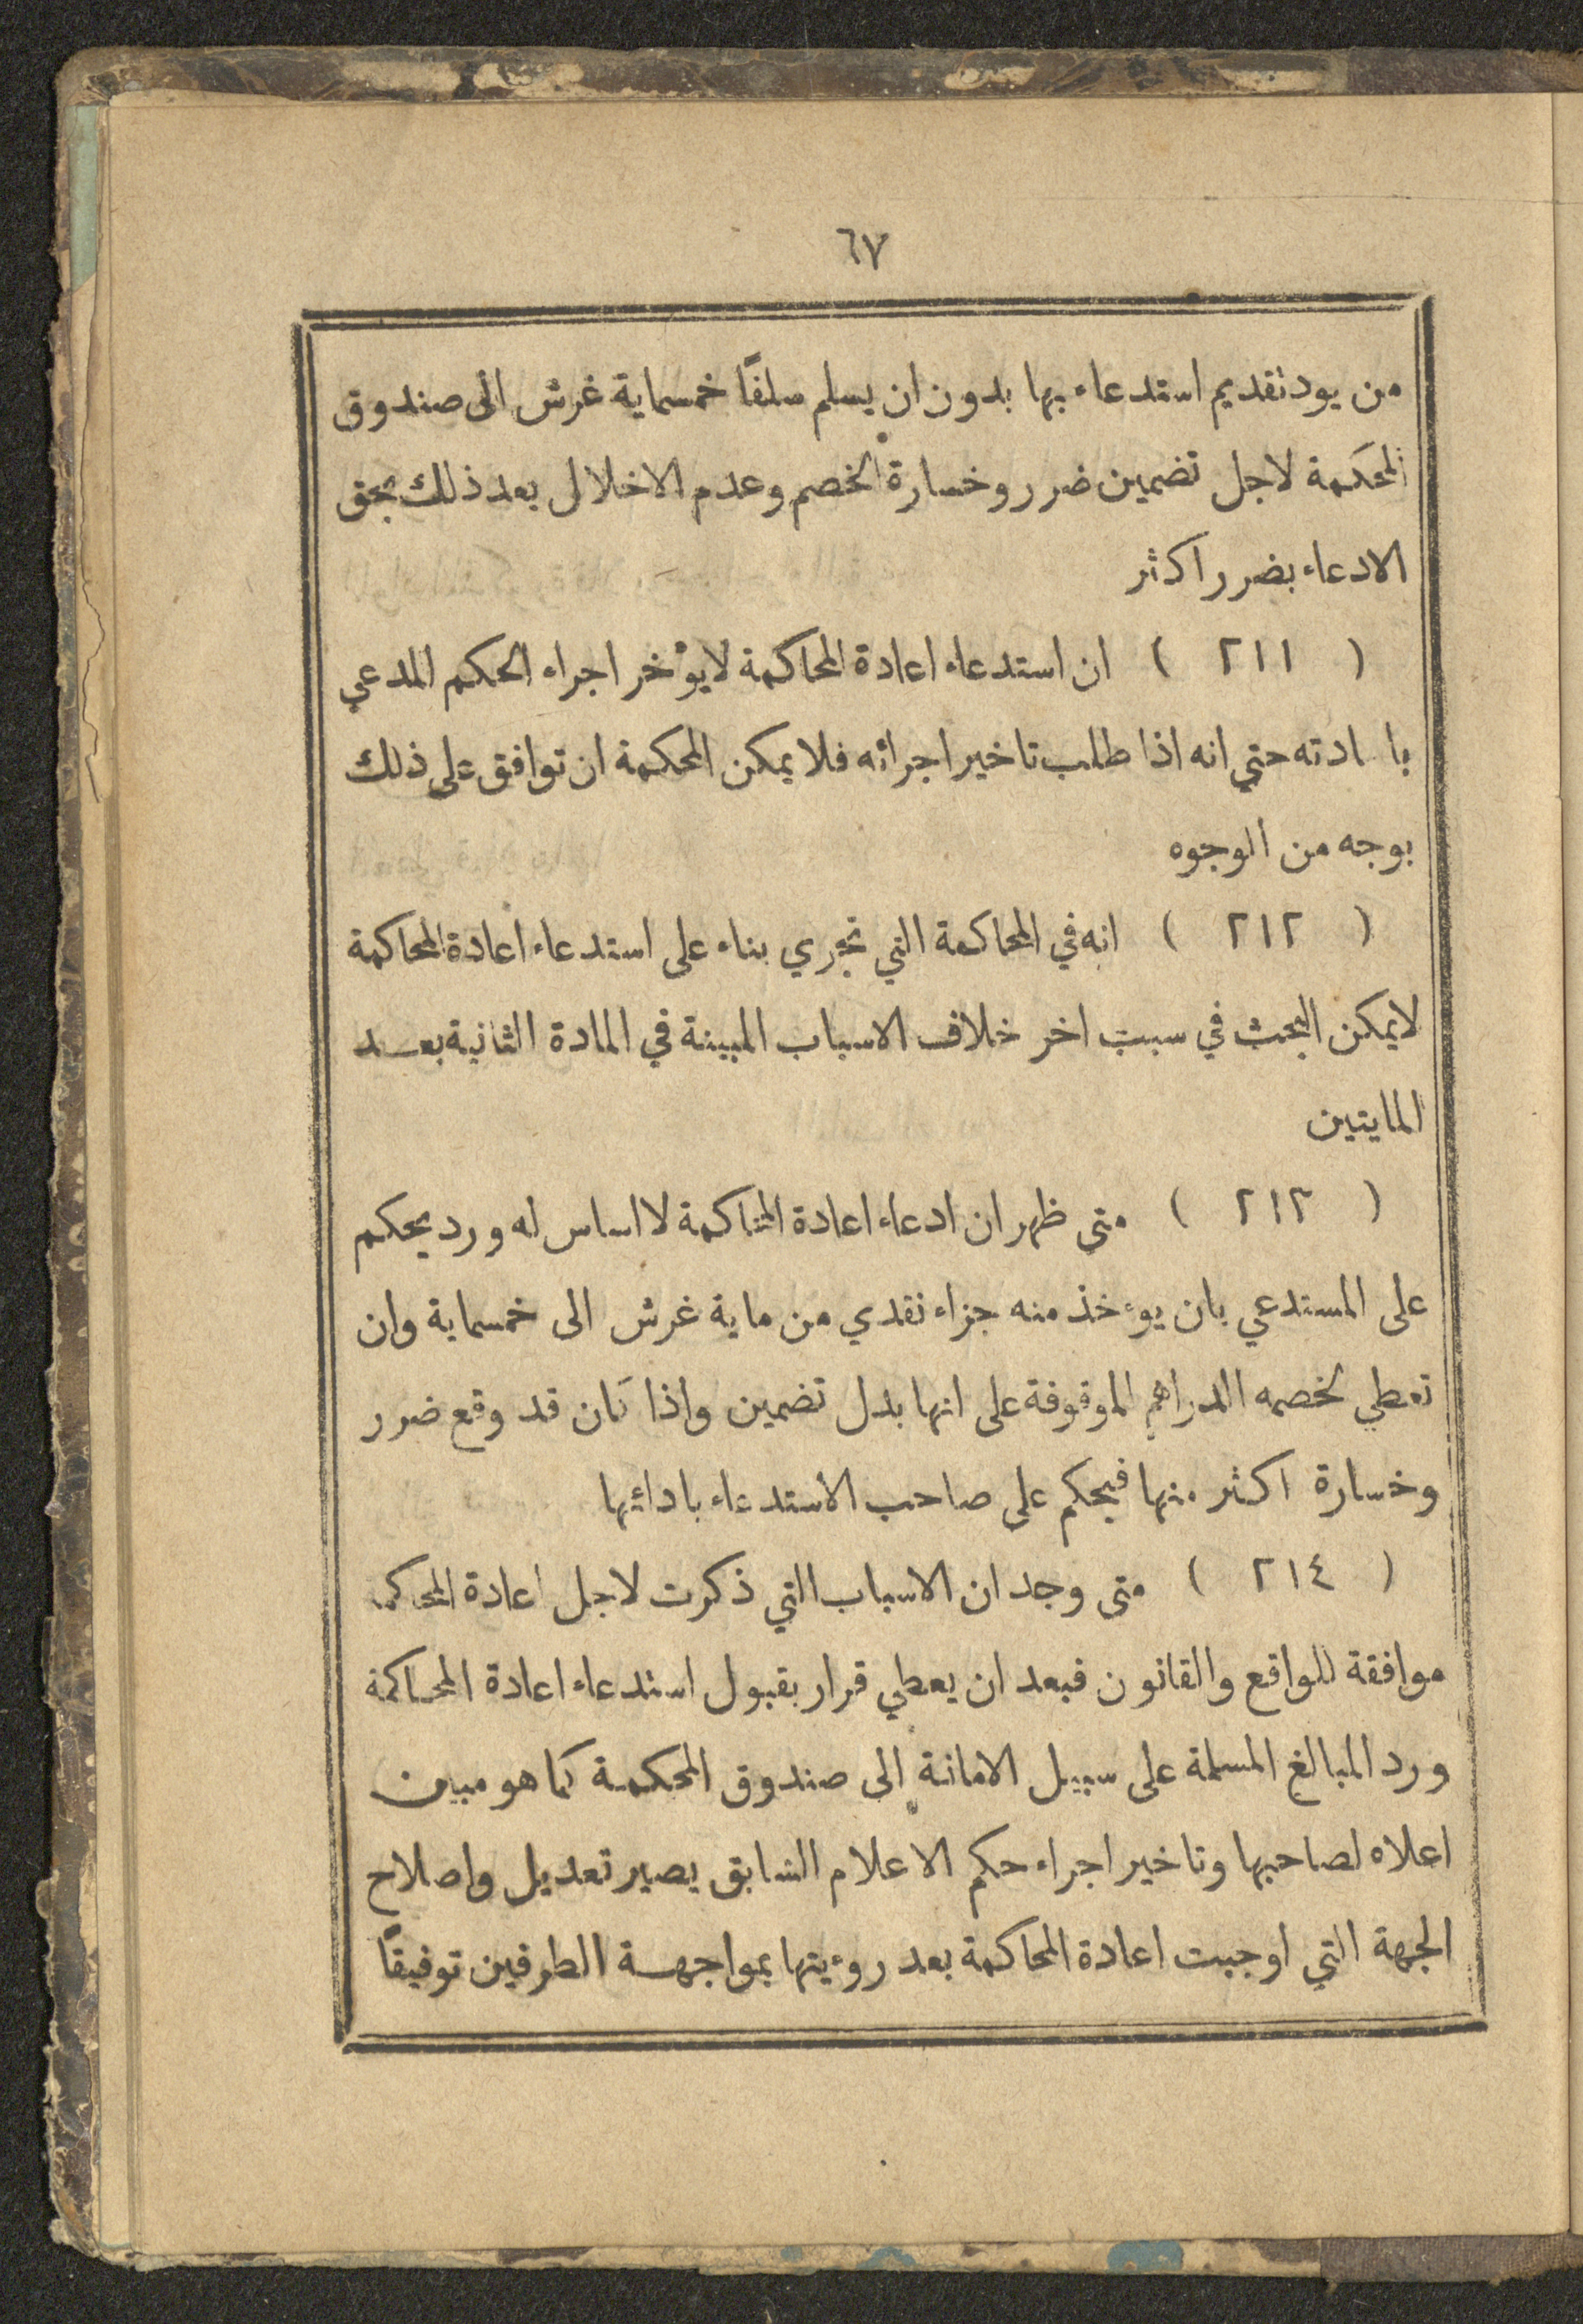 ٦٧
من يود تقديم استدعاء بها بدون ان يسلم سلفًا خمسماية غرش الى صندوق
المحكمة لاجل تضمين ضرر وخسارة الخصم وعدم الاخلال بعد ذلك بحق
الادعاء بضرر اكثر
( ٢١١ ) ان استدعاء اعادة المحاكمة لا يؤخر اجراء الحكم المدعي
با ادته حتي انه اذا طلب تاخير اجرائه فلا يمكن المحكمة ان توافق على ذلك
بوجه من الوجوه
( ٢١٢ ) انه في المحاكمة التي تجري بناء على استدعاء اعادة المحاكمة
لا يمكن البحث في سبب اخر خلاف الاسباب المبينة في المادة الثانية بعد
المايتين
( ٢١٣ ) متى ظهر ان ادعاء اعادة المحاكمة لا اساس له ورد يحكم
على المستدعي بان يوءخذ منه جزاء نقدي من ماية غرش الى خمسماية وان
تعطي لخصمه الدراهم الموقوفة على انها بدل تضمين واذا كان قد وقع ضرر
وخسارة اكثر منها فيحكم على صاحب الاستدعاء بادائها
( ٢١٤ ) متى وجد ان الاسباب التي ذكرت لاجل اعادة المحاكمة
موافقة للواقع والقانون فبعد ان يعطي قرار بقبول استدعاء اعادة المحاكمة
ورد المبالغ المسلمة على سبيل الامانة الى صندوق المحكمة كما هو مبين
اعلاه لصاحبها وتاخير اجراء حكم الاعلام السابق يصير تعديل واصلاح
الجهة التي اوجبت اعادة المحاكمة بعد روءيتها بمواجهة الطرفين توفيقًا